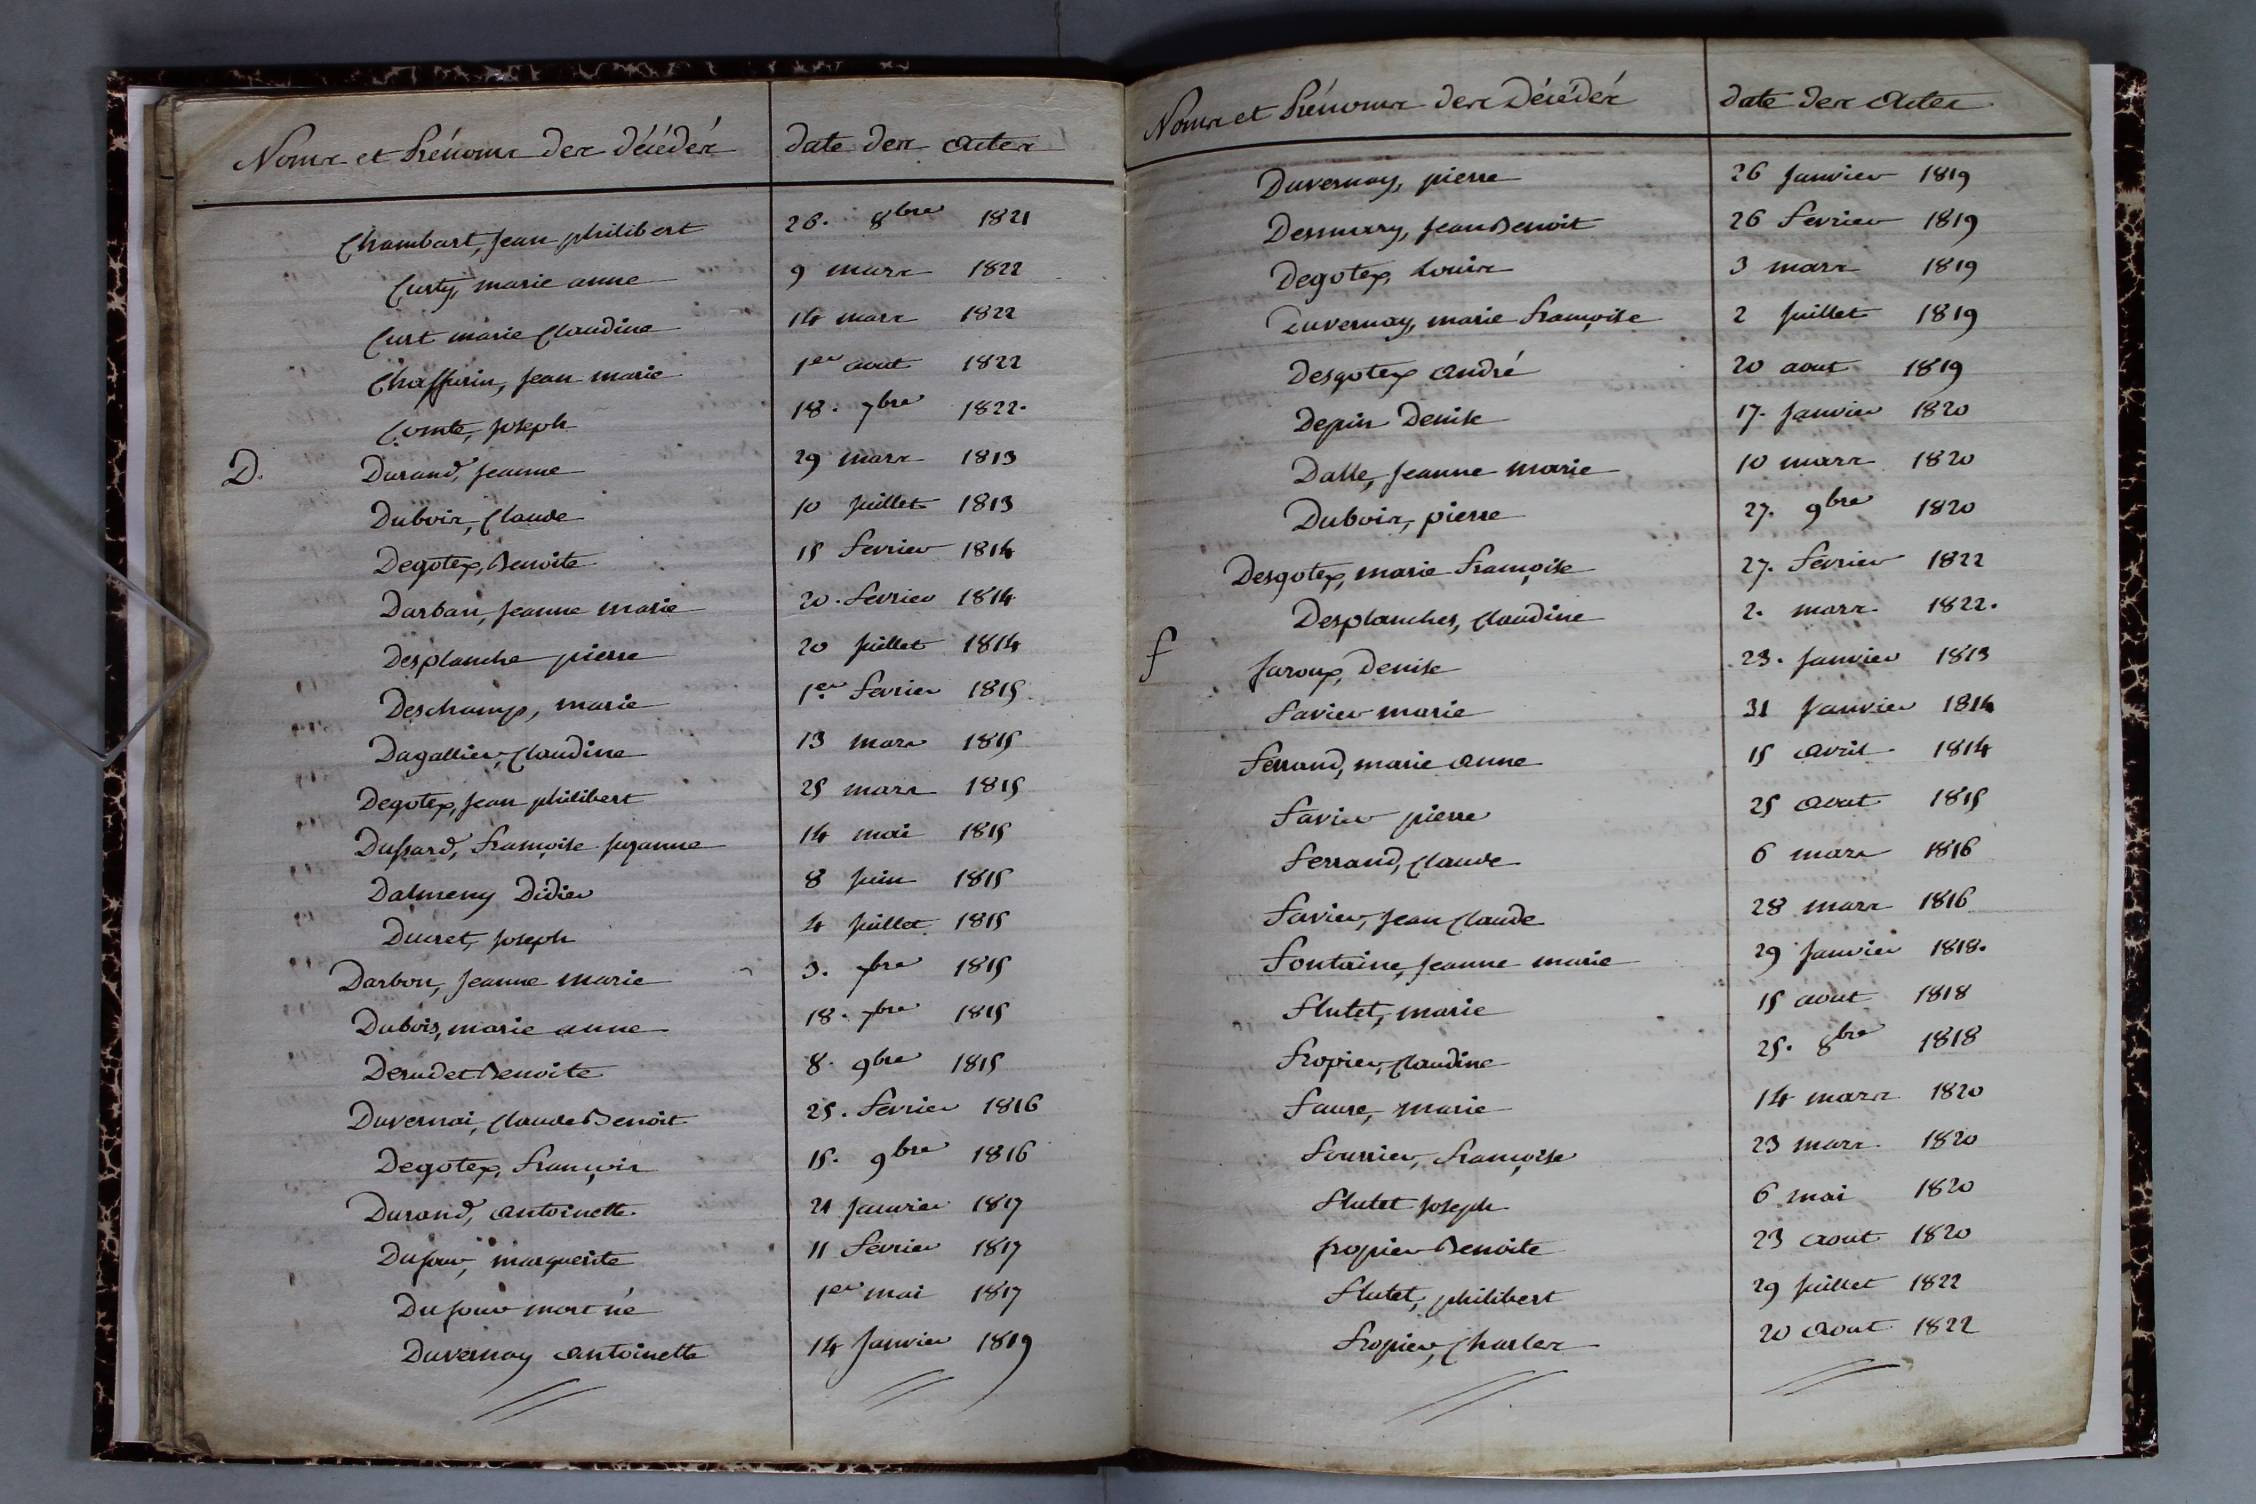 Noms et Prénoms des décédés date des actes
Chambart, Jean philibert 26. 8bre 1821
Curty, marie anne 9 mars 1822
Curt marie Claudine 14 mars 1822
Chaffurin, Jean marie 1er aout 1822
Comte, Joseph 18. 7bre 1822.
D. Durand, Jeanne 29 mars 1813
Dubois, Claude 10 Juillet 1813
Degotex, Benoite 15 fevrier 1814
Darban, Jeanne marie 20. fevrier 1814
Desplanche pierre 20 Juillet 1814
Deschamps, marie 1er fevrier 1815
Dagallier, Claudine 13 mars 1815
Degotex, Jean philibert 25 mars 1815
Dussard, françoise suzanne 14 mai 1815
Dalmeny Didier 8 Juin 1815
Ducret, Joseph 4 Juillet 1815
Darbon, Jeanne marie 3. 7bre 1815
Dubois, marie anne 18. 7bre 1815
Derudet Benoite 8. 9bre 1815
Duvernai, Claude Benoit 25. fevrier 1816
Degotex, françois 15. 9bre 1816
Durand, antoinette 21 Janvier 1817
Dufour, marguerite 11 février 1817
Dufour mort né 1er mai 1817
Duvernay antoinette 14 Janvier 1819
Noms et Prénoms des Décédés date des actes
Duvernay, pierre 26 Janvier 1819
Desmary, Jean Benoit 26 fevrier 1819
Degotex, Louis 3 mars 1819
Duvernay, marie françoise 2 Juillet 1819
Desgotex andré 20 aout 1819
Depin Denise 17. Janvier 1820
Dalle, Jeanne marie 10 mars 1820
Dubois, pierre 27. 9bre 1820
Desgotex, marie françoise 27. février 1822
Desplanches, Claudine 2. mars 1822.
f faroux, Denise 23. Janvier 1813
favier marie 31 Janvier 1814
ferrand, marie anne 15 avril 1814
favier pierre 25 aout 1815
ferrand, Claude 6 mars 1816
favier, Jean Claude 28 mars 1816
fontaine, Jeanne marie 29 Janvier 1818.
flutet, marie 15 aout 1818
fropier, Claudine 25. 8bre 1818
faure, marie 14 mars 1820
fourrier, françoise 23 mars 1820
flutet Joseph 6 mai 1820
fropier Benoite 23 aout 1820
flutet, philibert 29 Juillet 1822
fropier, Charles 20 aout 1822